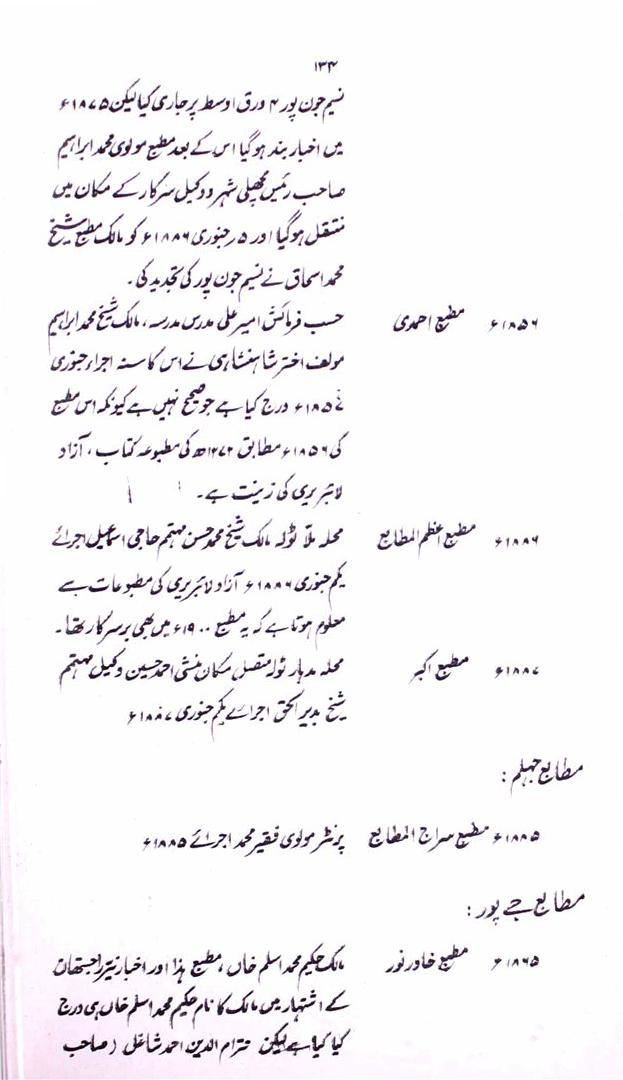 ۱۳۴
نسیم جون پور ۴ ورق اوسط پر جاری کیا لیکن ۱۸۷۵ء
میں اخبار بند ہوگیا اس کے بعد مطبع مولوی محمد ابراہیم
صاحب رئیس مچھلی شہر و وکیل سرکار کے مکان میں
منتقل ہوگیا اور ۵ر جنوری ۱۸۸۶ء کو مالک مطبع شیخ
محمد اسحاق نے نسیم جون پور کی تجدید کی۔
۱۸۵۶ء مطبع احمدی حسب فرمائش امیر علی مدرس مدرسہ، مالک شیخ محمد ابراہیم
مولف اختر شاہنشاہی نے اس کا سنہ اجراء جنوری
۱۸۵۷ء درج کیا ہے جو صحیح نہیں ہے کیونکہ اس مطبع
کی ۱۸۵۶ء مطابق ۱۲۷۲ھ کی مطبوعہ کتاب، آزاد
لائبریری کی زینت ہے۔
۱۸۸۶ء مطبع اعظم المطابع محلہ ملّا ٹولہ مالک شیخ محمد حسن مہتمم حاجی اسماعیل اجرائے
یکم جنوری ۱۸۸۶ء آزاد لائبریری کی مطبوعات سے
معلوم ہوتا ہے کہ یہ مطبع ۱۹۰۰ء میں بھی برسرکار تھا۔
۱۸۸۷ء مطبع اکبر محلہ مدہار ٹولہ متصل مکان منشی احمد حسین وکیل مہتمم
شیخ بدیر الحق اجرائے یکم جنوری ۱۸۸۷ء
مطابع جہلم :
۱۸۸۵ء مطبع سراج المطابع پرنٹر مولوی فقیر محمد اجرائے ۱۸۸۵ء
مطابع جے پور :
۱۸۶۵ء مطبع خاور نور مالک حکیم محمد اسلم خاں، مطبع ہذا اور اخبار نیّر راجستھان
کے اشتہار میں مالک کا نام حکیم محمد اسلم خاں ہی درج
کیا گیا ہے لیکن احترام الدین احمد شاغل (صاحب